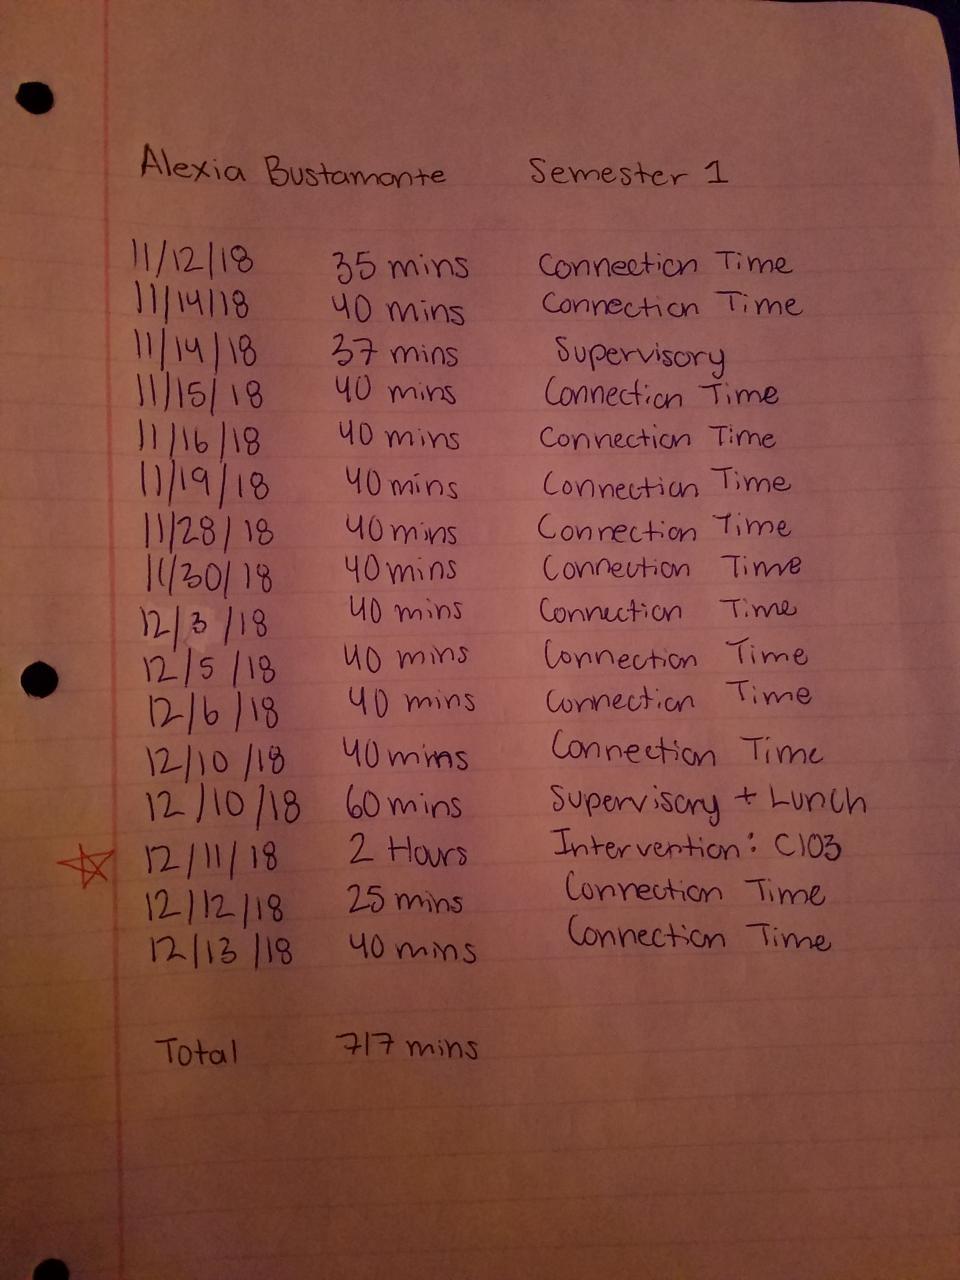 Alexia Bustamante Semester 1
11/12/18 35 mins Connection Time
11/14/18 40 mins Connection Time
11/14/18 37 mins Supervisory
11/15/18 40 mins Connection Time
11/16/18 40 mins Connection Time
11/19/18 40 mins Connection Time
11/28/18 40 mins Connection Time
11/30/18 40 mins Connection Time
12/3/18 40 mins Connection Time
12/5/18 40 mins Connection Time
12/6/18 40 mins Connection Time
12/10/18 40 mins Connection Time
12/10/18 60 mins Supervisory + Lunch
12/11/18 2 Hours Intervention: C103
12/12/18 25 mins Connection Time
12/13/18 40 mins Connection Time
Total 717 mins